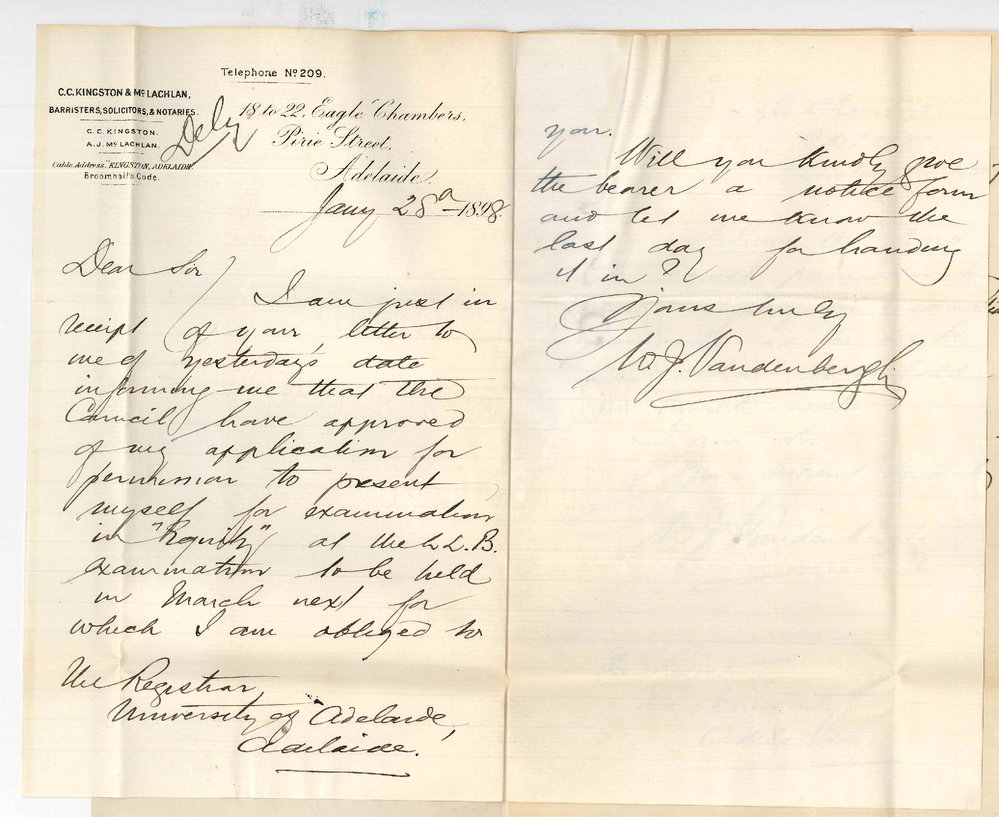 Telephone No. 209.
C.C. KINGSTON & McLACHLAN,
BARRISTERS, SOLICITORS, & NOTARIES.
C. C. KINGSTON.
A. J. McLACHLAN.
Cable Address, "KINGSTON, ADELAIDE"
Broomhall's Code.
18 to 22, Eagle Chambers,
Pirie Street,
Adelaide,
Jany 28th 1898
Dear Sir
I am just in
receipt of your letter to
me of yesterday's date
informing me that the
Council have approved
of my application for
permission to present
myself for examination
in "Equity" at the LL.B.
examination to be held
in March next for
which I am obliged to
The Registrar,
University of Adelaide,
Adelaide.
you.
Will you kindly give
the bearer a notice form
and let me know the
last day for handing
it in?
Yours truly
W. J. Vandenbergh